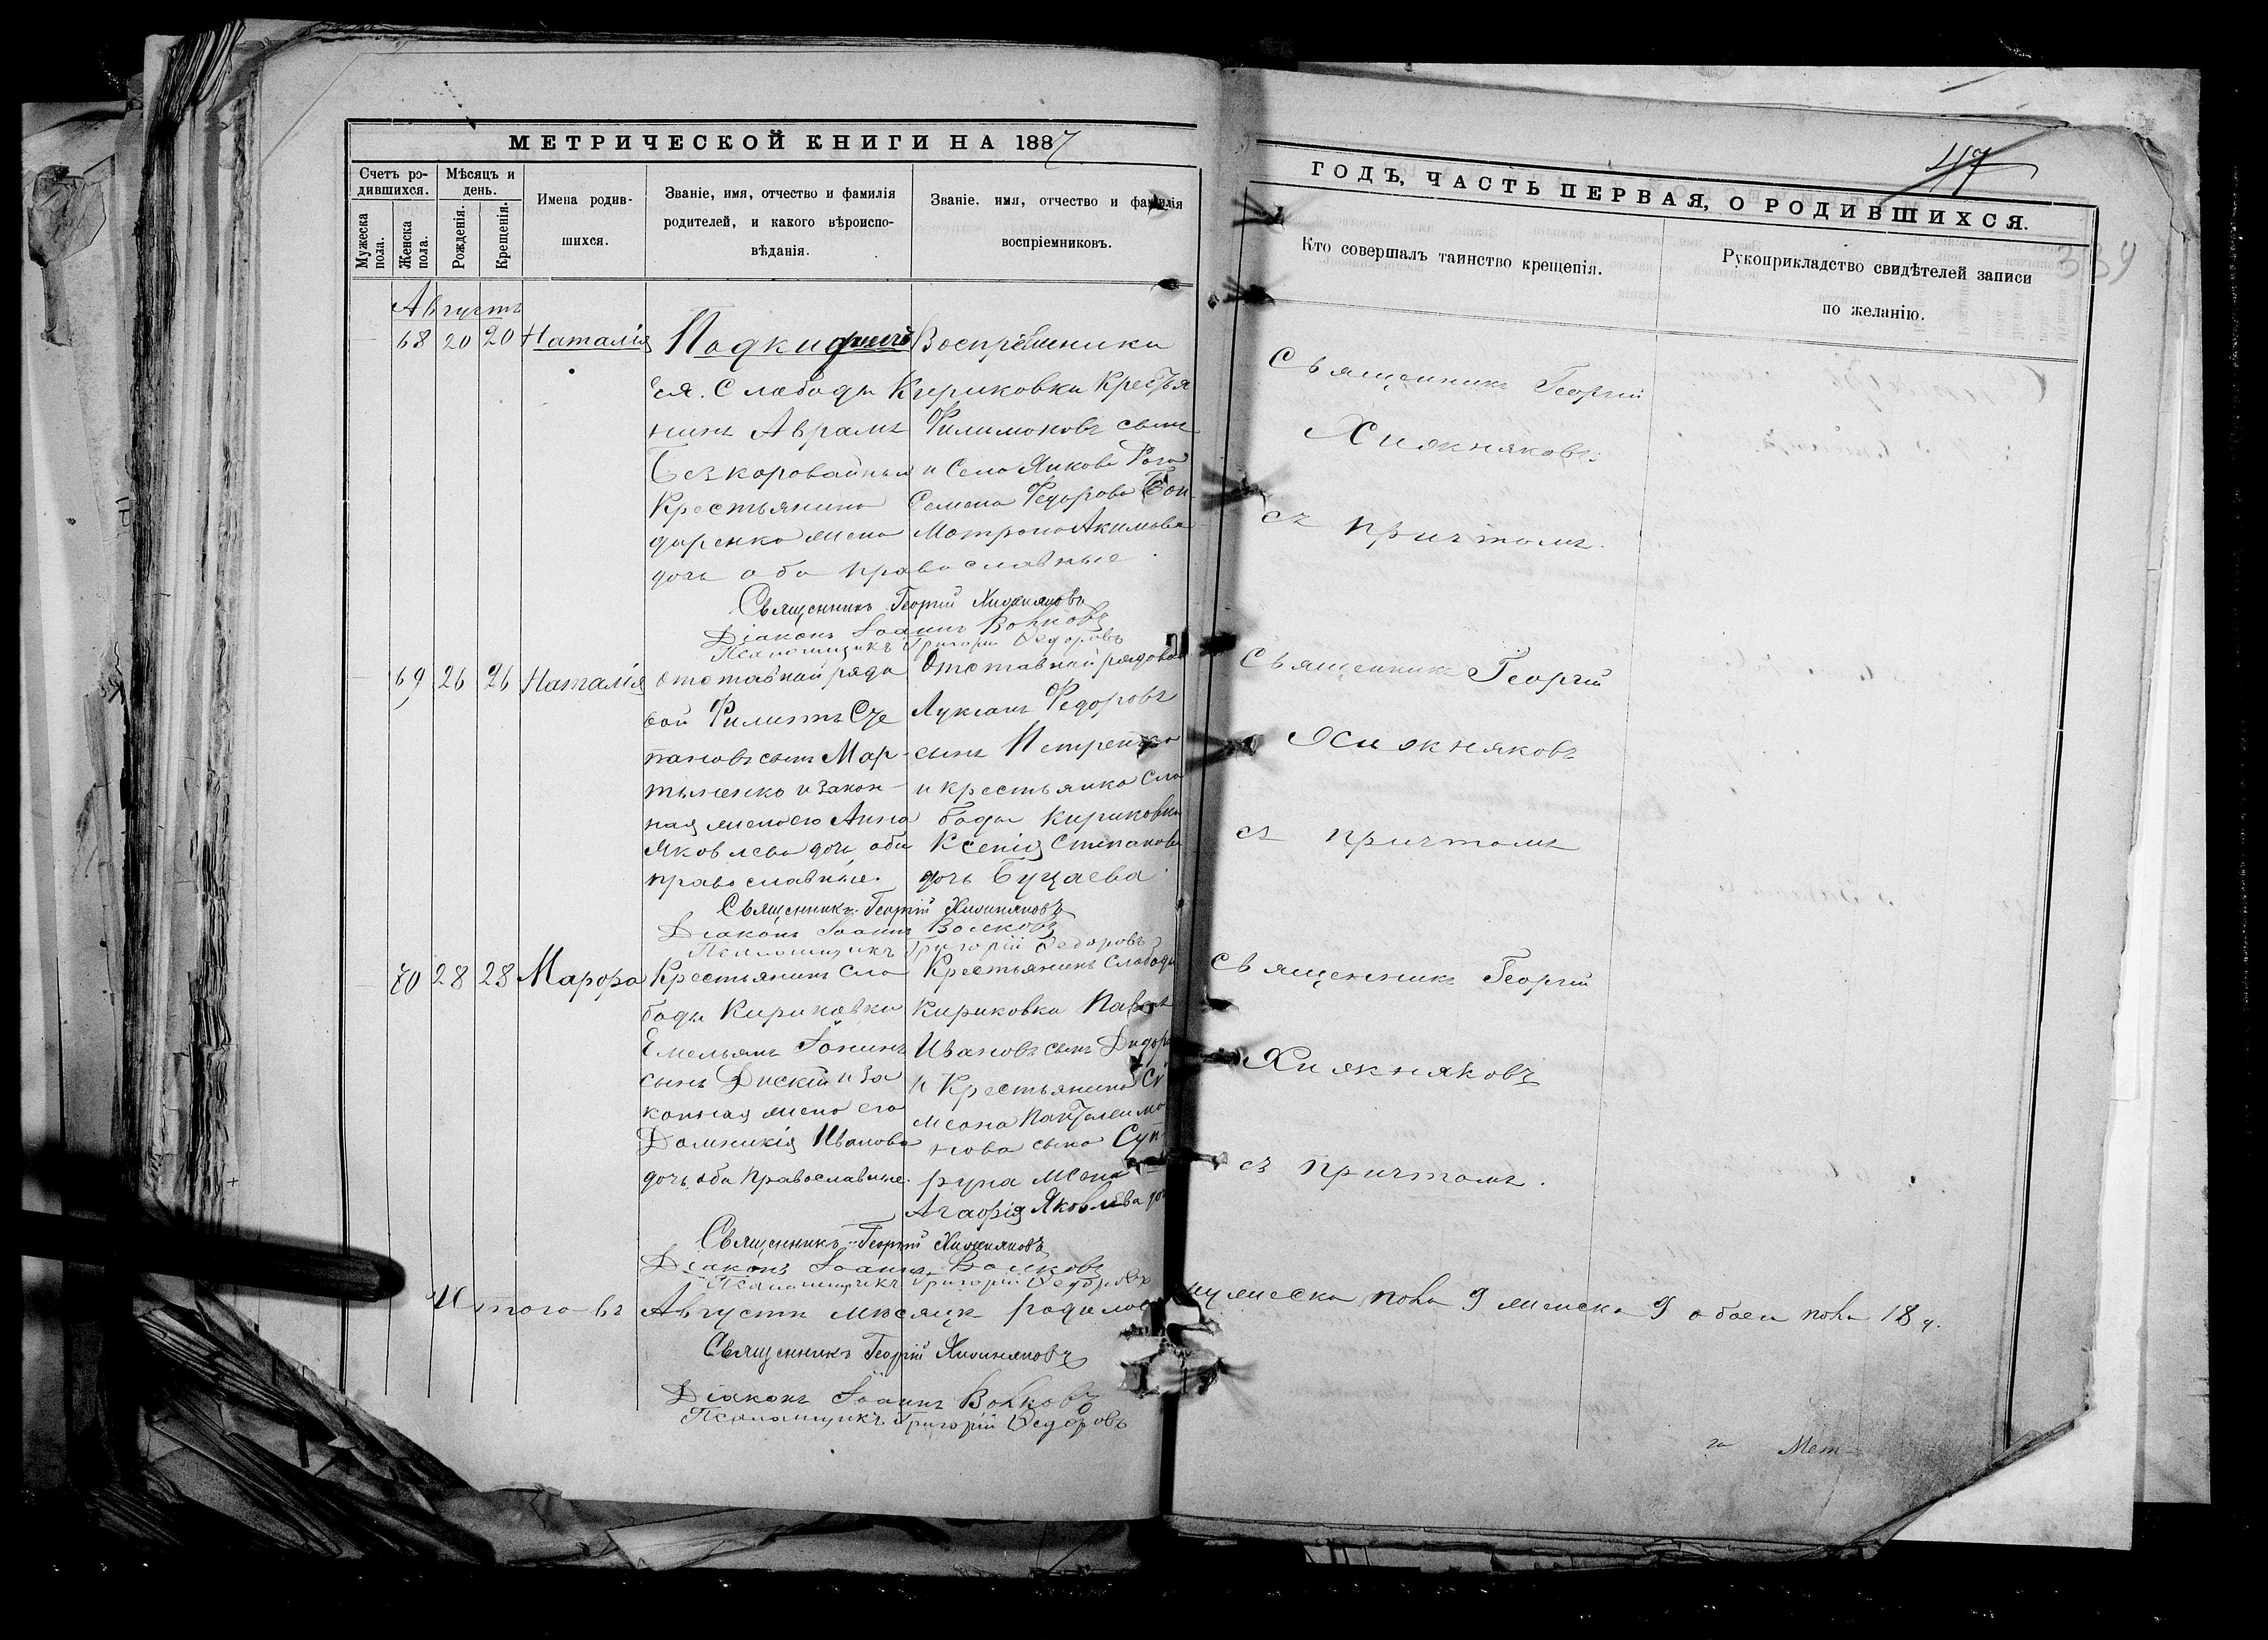 МЕТРИЧЕСКОЙ КНИГИ НА 1887
Счетъ ро-
дившихся.
Мужеска пола.
Женска пола.
Мѣсяцъ и
день.
Рожденія.
Крещенія.
Имена родив-
шихся.
Званіе, имя, отчество и фамилія
родителей, и какого вѣроиспо-
вѣданія.
Званіе, имя, отчество и фамилія
воспріемниковъ.
Августъ
68 20 20 Наталія Подкидышъ Воспріемники
ея. Слабоды Кириковки Крестья
нинъ Аврамъ Филимоновъ сынъ
Безкоровайный и Села Янкова Рога
Крестьянина Семена Федорова Бон-
даренка жена Матрона Акимова
дочь оба православные
Священникъ Георгій Хижняковъ
Діаконъ Іоаннъ Волковъ
Псаломщикъ Григорій Федоровъ
69 26 26 Наталія
Отставной рядо
вой Филиппъ Сте
пановъ сынъ Мар-
тыненко и закон-
ная жена его Анна
Яковлева дочь, оба
православные.
Отставной рядовой
Лукіанъ Федоровъ
сынъ Петренко
и крестьянка Сло
боды Кириковки
Ксенія Степанова
дочь Буцаева
Священникъ Георгій Хижняковъ
Діаконъ Іоаннъ Волковъ
Псаломщикъ Григорій Федоровъ
70 28 28 Мавра
Крестьянинъ Сло
боды Кириковки
Емельянъ Іонинъ
сынъ и за
конная жена его
Домникія Иванова
дочь, оба православные.
Крестьянинъ Слободы
Кириковки Павелъ
Ивановъ сынъ
и Крестьянина Си
меона Пантелеимо
нова сына Суп-
руна жена
Агафія Яковлева доч
Священникъ Георгій Хижняковъ
Діаконъ Іоаннъ Волковъ
Псаломщикъ Григорій Федоровъ
Итого въ Августѣ мѣсяцѣ родилось мужеска пола 9 женска 9 обоего пола 18 ч.
Священникъ Георгій Хижняковъ
Діаконъ Іоаннъ Волковъ
Псаломщикъ Григорій Федоровъ
47
ГОДЪ, ЧАСТЬ ПЕРВАЯ, О РОДИВШИХСЯ.
339
Кто совершалъ таинство крещенія.
Рукоприкладство свидѣтелей записи
по желанію.
Священникъ Георгій
Хижняковъ
съ причтомъ.
Священникъ Георгій
Хижняковъ
съ причтомъ
Священникъ Георгій
Хижняковъ
съ причтомъ.